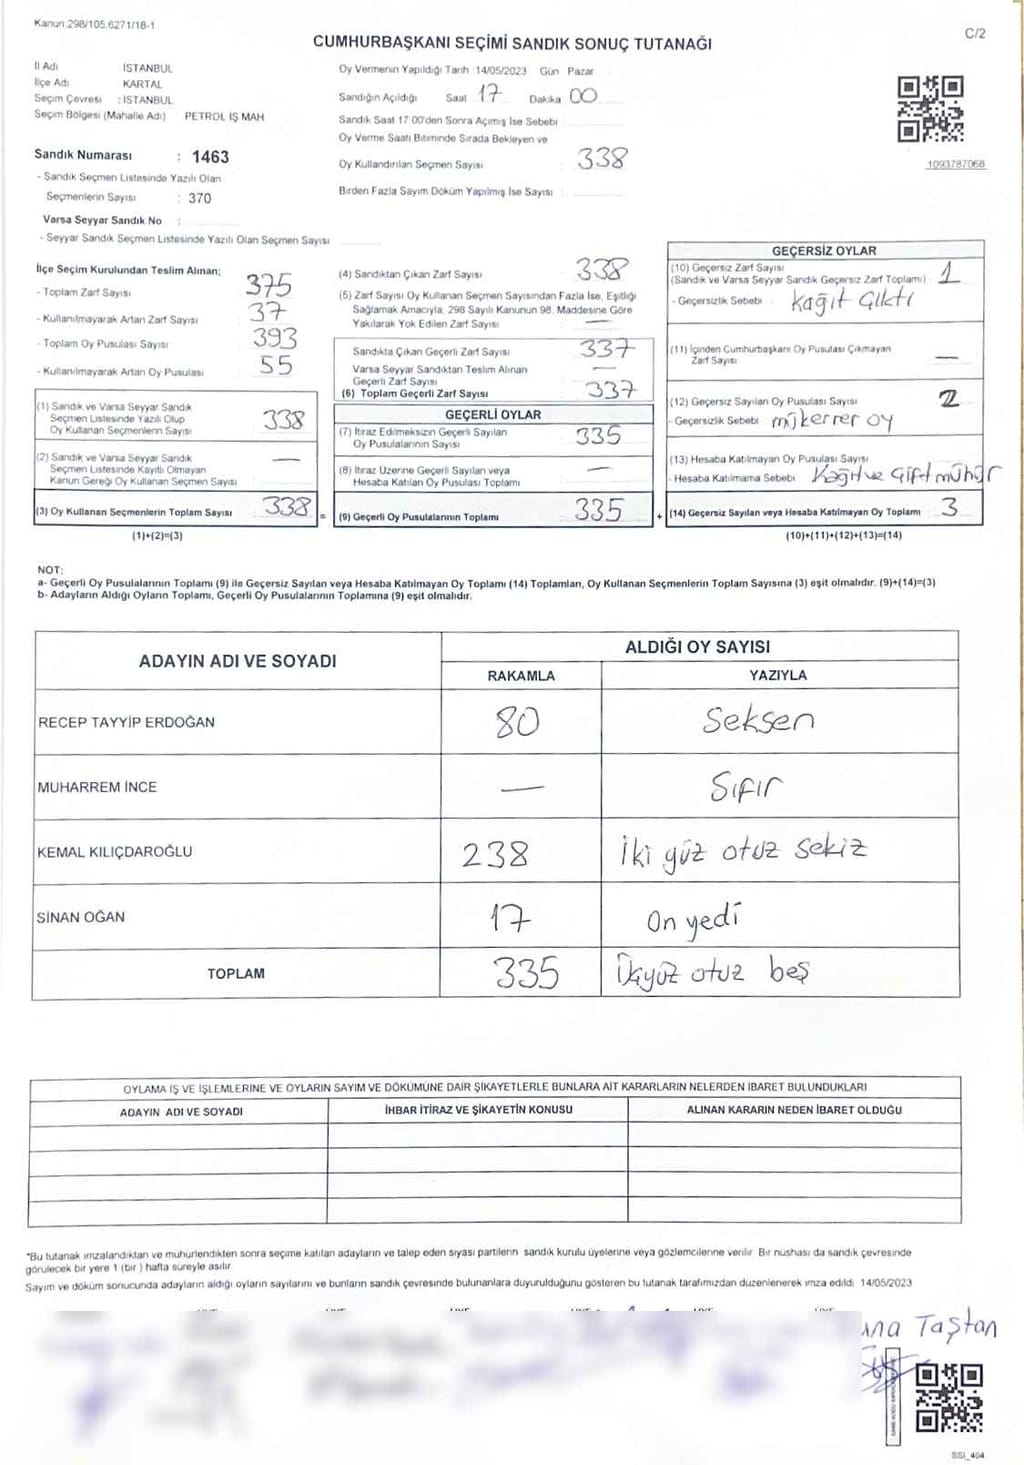 Kanun 298/105,6271/18-1
C/2
CUMHURBAŞKANI SEÇİMİ SANDIK SONUÇ TUTANAĞI
İl Adı İSTANBUL
İlçe Adı KARTAL
Seçim Çevresi : İSTANBUL
Seçim Bölgesi (Mahalle Adı) PETROL İŞ MAH
Sandık Numarası : 1463
- Sandık Seçmen Listesinde Yazılı Olan
Seçmenlerin Sayısı : 370
Varsa Seyyar Sandık No :
- Seyyar Sandık Seçmen Listesinde Yazılı Olan Seçmen Sayısı
Oy Vermenin Yapıldığı Tarih 14/05/2023 Gün Pazar
Sandığın Açıldığı Saat 17 Dakika 00
Sandık Saat 17 00'den Sonra Açımış İse Sebebi
Oy Verme Saati Bitiminde Sırada Bekleyen ve
Oy Kullandırılan Seçmen Sayısı : 338
Birden Fazla Sayım Döküm Yapılmış İse Sayısı :
1093787068
İlçe Seçim Kurulundan Teslim Alınan;
- Toplam Zarf Sayısı 375
- Kullanılmayarak Artan Zarf Sayısı 37
- Toplam Oy Pusulası Sayısı 393
- Kullanılmayarak Artan Oy Pusulası 55
(1) Sandık ve Varsa Seyyar Sandık
Seçmen Listesinde Yazılı Olup
Oy Kullanan Seçmenlerin Sayısı 338
(2) Sandık ve Varsa Seyyar Sandık
Seçmen Listesinde Kayıtlı Olmayan
Kanun Gereği Oy Kullanan Seçmen Sayısı —
(3) Oy Kullanan Seçmenlerin Toplam Sayısı 338 =
(1)+(2)=(3)
(4) Sandıktan Çıkan Zarf Sayısı 338
(5) Zarf Sayısı Oy Kullanan Seçmen Sayısından Fazla İse, Eşitliği
Sağlamak Amacıyla, 298 Sayılı Kanunun 98. Maddesine Göre
Yakılarak Yok Edilen Zarf Sayısı —
Sandıkta Çıkan Geçerli Zarf Sayısı 337
Varsa Seyyar Sandıktan Teslim Alınan
Geçerli Zarf Sayısı —
(6) Toplam Geçerli Zarf Sayısı 337
GEÇERLİ OYLAR
(7) İtiraz Edilmeksizin Geçerli Sayılan
Oy Pusulalarının Sayısı 335
(8) İtiraz Üzerine Geçerli Sayılan veya
Hesaba Katılan Oy Pusulası Toplamı —
(9) Geçerli Oy Pusulalarının Toplamı 335 +
GEÇERSİZ OYLAR
(10) Geçersiz Zarf Sayısı
(Sandık ve Varsa Seyyar Sandık Geçersiz Zarf Toplamı) 1
- Geçersizlik Sebebi : Kağıt Çıktı
(11) İçinden Cumhurbaşkanı Oy Pusulası Çıkmayan
Zarf Sayısı —
(12) Geçersiz Sayılan Oy Pusulası Sayısı 2
- Geçersizlik Sebebi mükerrer oy
(13) Hesaba Katılmayan Oy Pusulası Sayısı
- Hesaba Katılmama Sebebi Kağıt ve Çift mühür
(14) Geçersiz Sayılan veya Hesaba Katılmayan Oy Toplamı 3
(10)+(11)+(12)+(13)=(14)
NOT:
a- Geçerli Oy Pusulalarının Toplamı (9) ile Geçersiz Sayılan veya Hesaba Katılmayan Oy Toplamı (14) Toplamları, Oy Kullanan Seçmenlerin Toplam Sayısına (3) eşit olmalıdır. (9)+(14)=(3)
b- Adayların Aldığı Oyların Toplamı, Geçerli Oy Pusulalarının Toplamına (9) eşit olmalıdır.
ADAYIN ADI VE SOYADI
ALDIĞI OY SAYISI
RAKAMLA YAZIYLA
RECEP TAYYİP ERDOĞAN 80 Seksen
MUHARREM İNCE — Sıfır
KEMAL KILIÇDAROĞLU 238 İki yüz otuz sekiz
SİNAN OĞAN 17 On yedi
TOPLAM 335 Üçyüz otuz beş
OYLAMA İŞ VE İŞLEMLERİNE VE OYLARIN SAYIM VE DÖKÜMÜNE DAİR ŞİKAYETLERLE BUNLARA AİT KARARLARIN NELERDEN İBARET BULUNDUKLARI
ADAYIN ADI VE SOYADI İHBAR İTİRAZ VE ŞİKAYETİN KONUSU ALINAN KARARIN NEDEN İBARET OLDUĞU
*Bu tutanak imzalandıktan ve mühürlendikten sonra seçime katılan adayların ve talep eden siyasi partilerin sandık kurulu üyelerine veya gözlemcilerine verilir. Bir nüshası da sandık çevresinde
görülecek bir yere 1 (bir ) hafta süreyle asılır
Sayım ve döküm sonucunda adayların aldığı oyların sayılarını ve bunların sandık çevresinde bulunanlara duyurulduğunu gösteren bu tutanak tarafımızdan düzenlenerek imza edildi 14/05/2023
Taştan
SSI_404